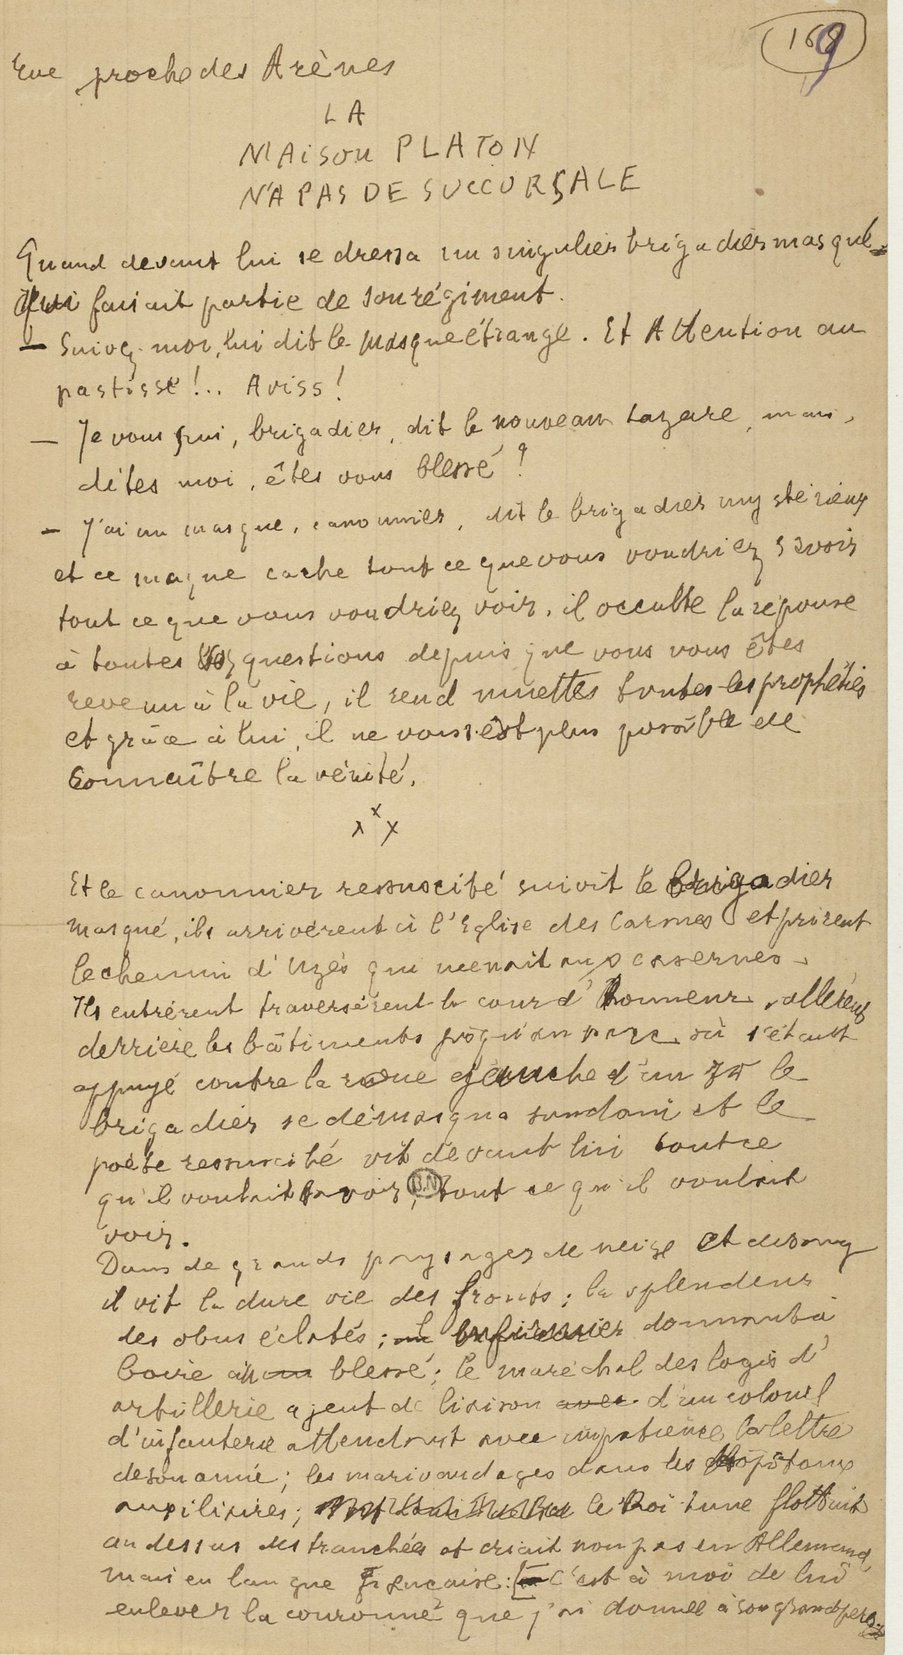 169
rue proche des Arènes
LA
MAiSon PLATON
N'A PAS DE SUCCURSALE
Quand devant lui se dressa un singulier brigadier masqué
qui faisait partie de son régiment.
— Suivez-moi, lui dit le masque étrange. Et Attention au
pastisse!.. Aviss!
— Je vous suis, brigadier, dit le nouveau Lazare, mais,
dites moi, êtes vous blessé?
— J'ai un masque, canonnier, dit le brigadier mystérieux
et ce masque cache tout ce que vous voudriez savoir
tout ce que vous voudriez voir, il occulte la réponse
à toutes vos questions depuis que vous vous êtes
revenu à la vie, il rend muettes toutes les prophéties
et grâce à lui, il ne vous est plus possible de
connaître la vérité.
x x x
Et le canonnier ressuscité suivit le brigadier
masqué, ils arrivèrent à l'Eglise des Carmes et prirent
le chemin d'Uzès qui menait aux casernes.
Ils entrèrent traversèrent la cour d'honneur, allèrent
derrière les bâtiments jusqu'au parc où s'étant
appuyé contre la roue gauche d'un 75 le
brigadier se démasqua soudain et le
poète ressuscité vit devant lui tout ce
qu'il voulait savoir, tout ce qu'il voulait
B.N
voir.
Dans de grands paysages de neige et de sang
il vit la dure vie des fronts; la splendeur
des obus éclatés; infirmier donnant à
boire à un blessé; le maréchal des logis d'
artillerie agent de liaison avec d'un colonel
d'infanterie attendant avec impatience la lettre
de son amie; les marivaudages dans les hôpitaux
auxiliaires; le Roi Lune flottait
au dessus des tranchées et criait non pas en Allemand,
mais en langue Française: C'est à moi de lui
enlever la couronne que j'ai donnée à son grand père